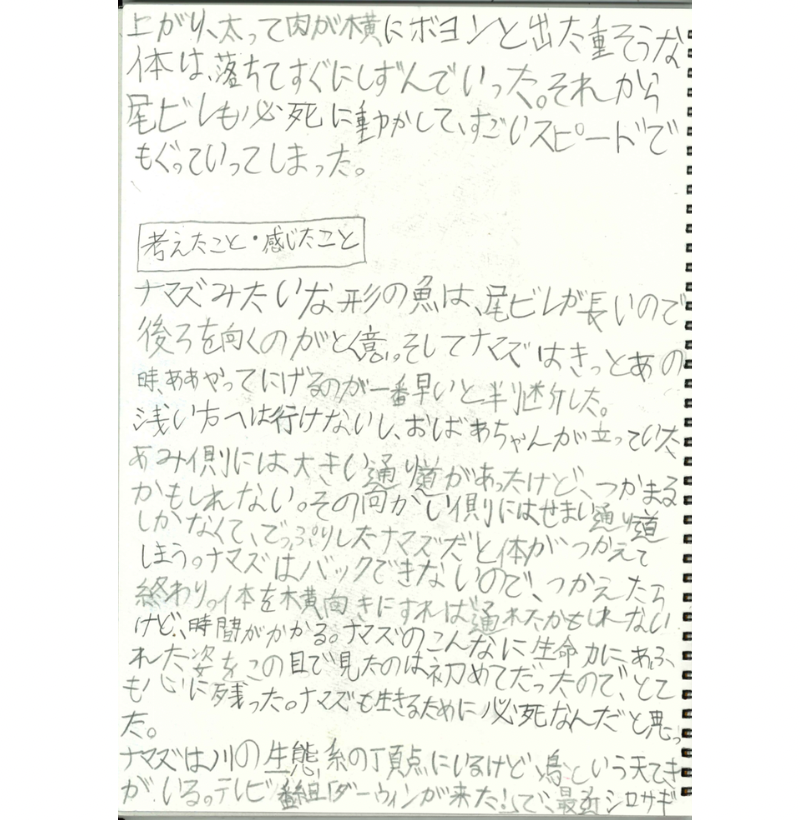 上がり、太って肉が横にボヨンと出た重そうな
体は、落ちてすぐにしずんでいった。それから
尾ビレも必死に動かして、すごいスピードで
もぐっていってしまった。
考えたこと・感じたこと
ナマズみたいな形の魚は、尾ビレが長いので
後ろを向くのがとく意。そしてナマズはきっとあの
時、ああやってにげるのが一番早いと判断した。
浅い方へは行けないし、おばあちゃんが立っていた
あみ側には大きい通り道があったけど、つかまる
かもしれない。その向かい側にはせまい通り道
しかなくて、でっぷりしたナマズだと体がつかえて
しまう。ナマズはバックできないので、つかえたら
終わり。体を横向きにすれば通れたかもしれない
けど、時間がかかる。ナマズのこんなに生命力にあふ
れた姿をこの目で見たのは初めてだったので、とて
も心に残った。ナマズも生きるために必死なんだと思っ
た。
ナマズは川の生態系の頂点にいるけど、鳥という天てき
がいる。テレビ番組「ダーウィンが来た!」で、最近シロサギ